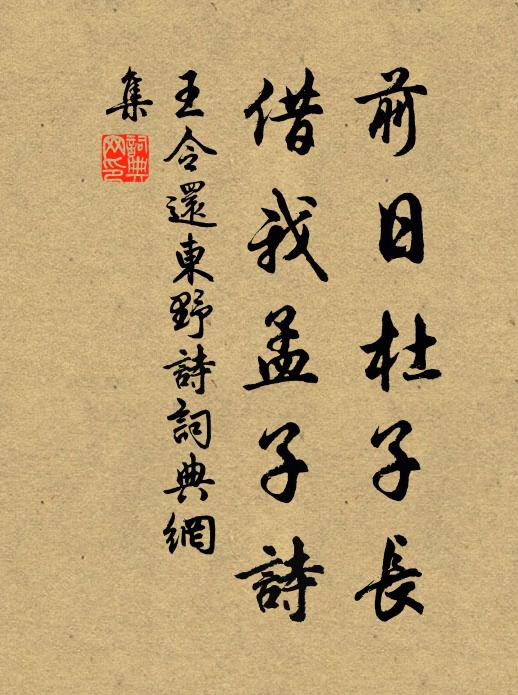 前日杜子長
借我孟子詩
王令還東野詩詞典網
集
詞典網印